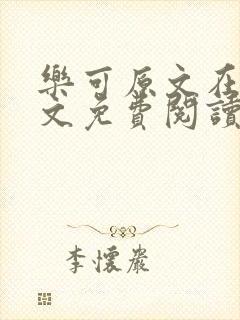 樂可原文在
文免費閱讀
李懷嚴